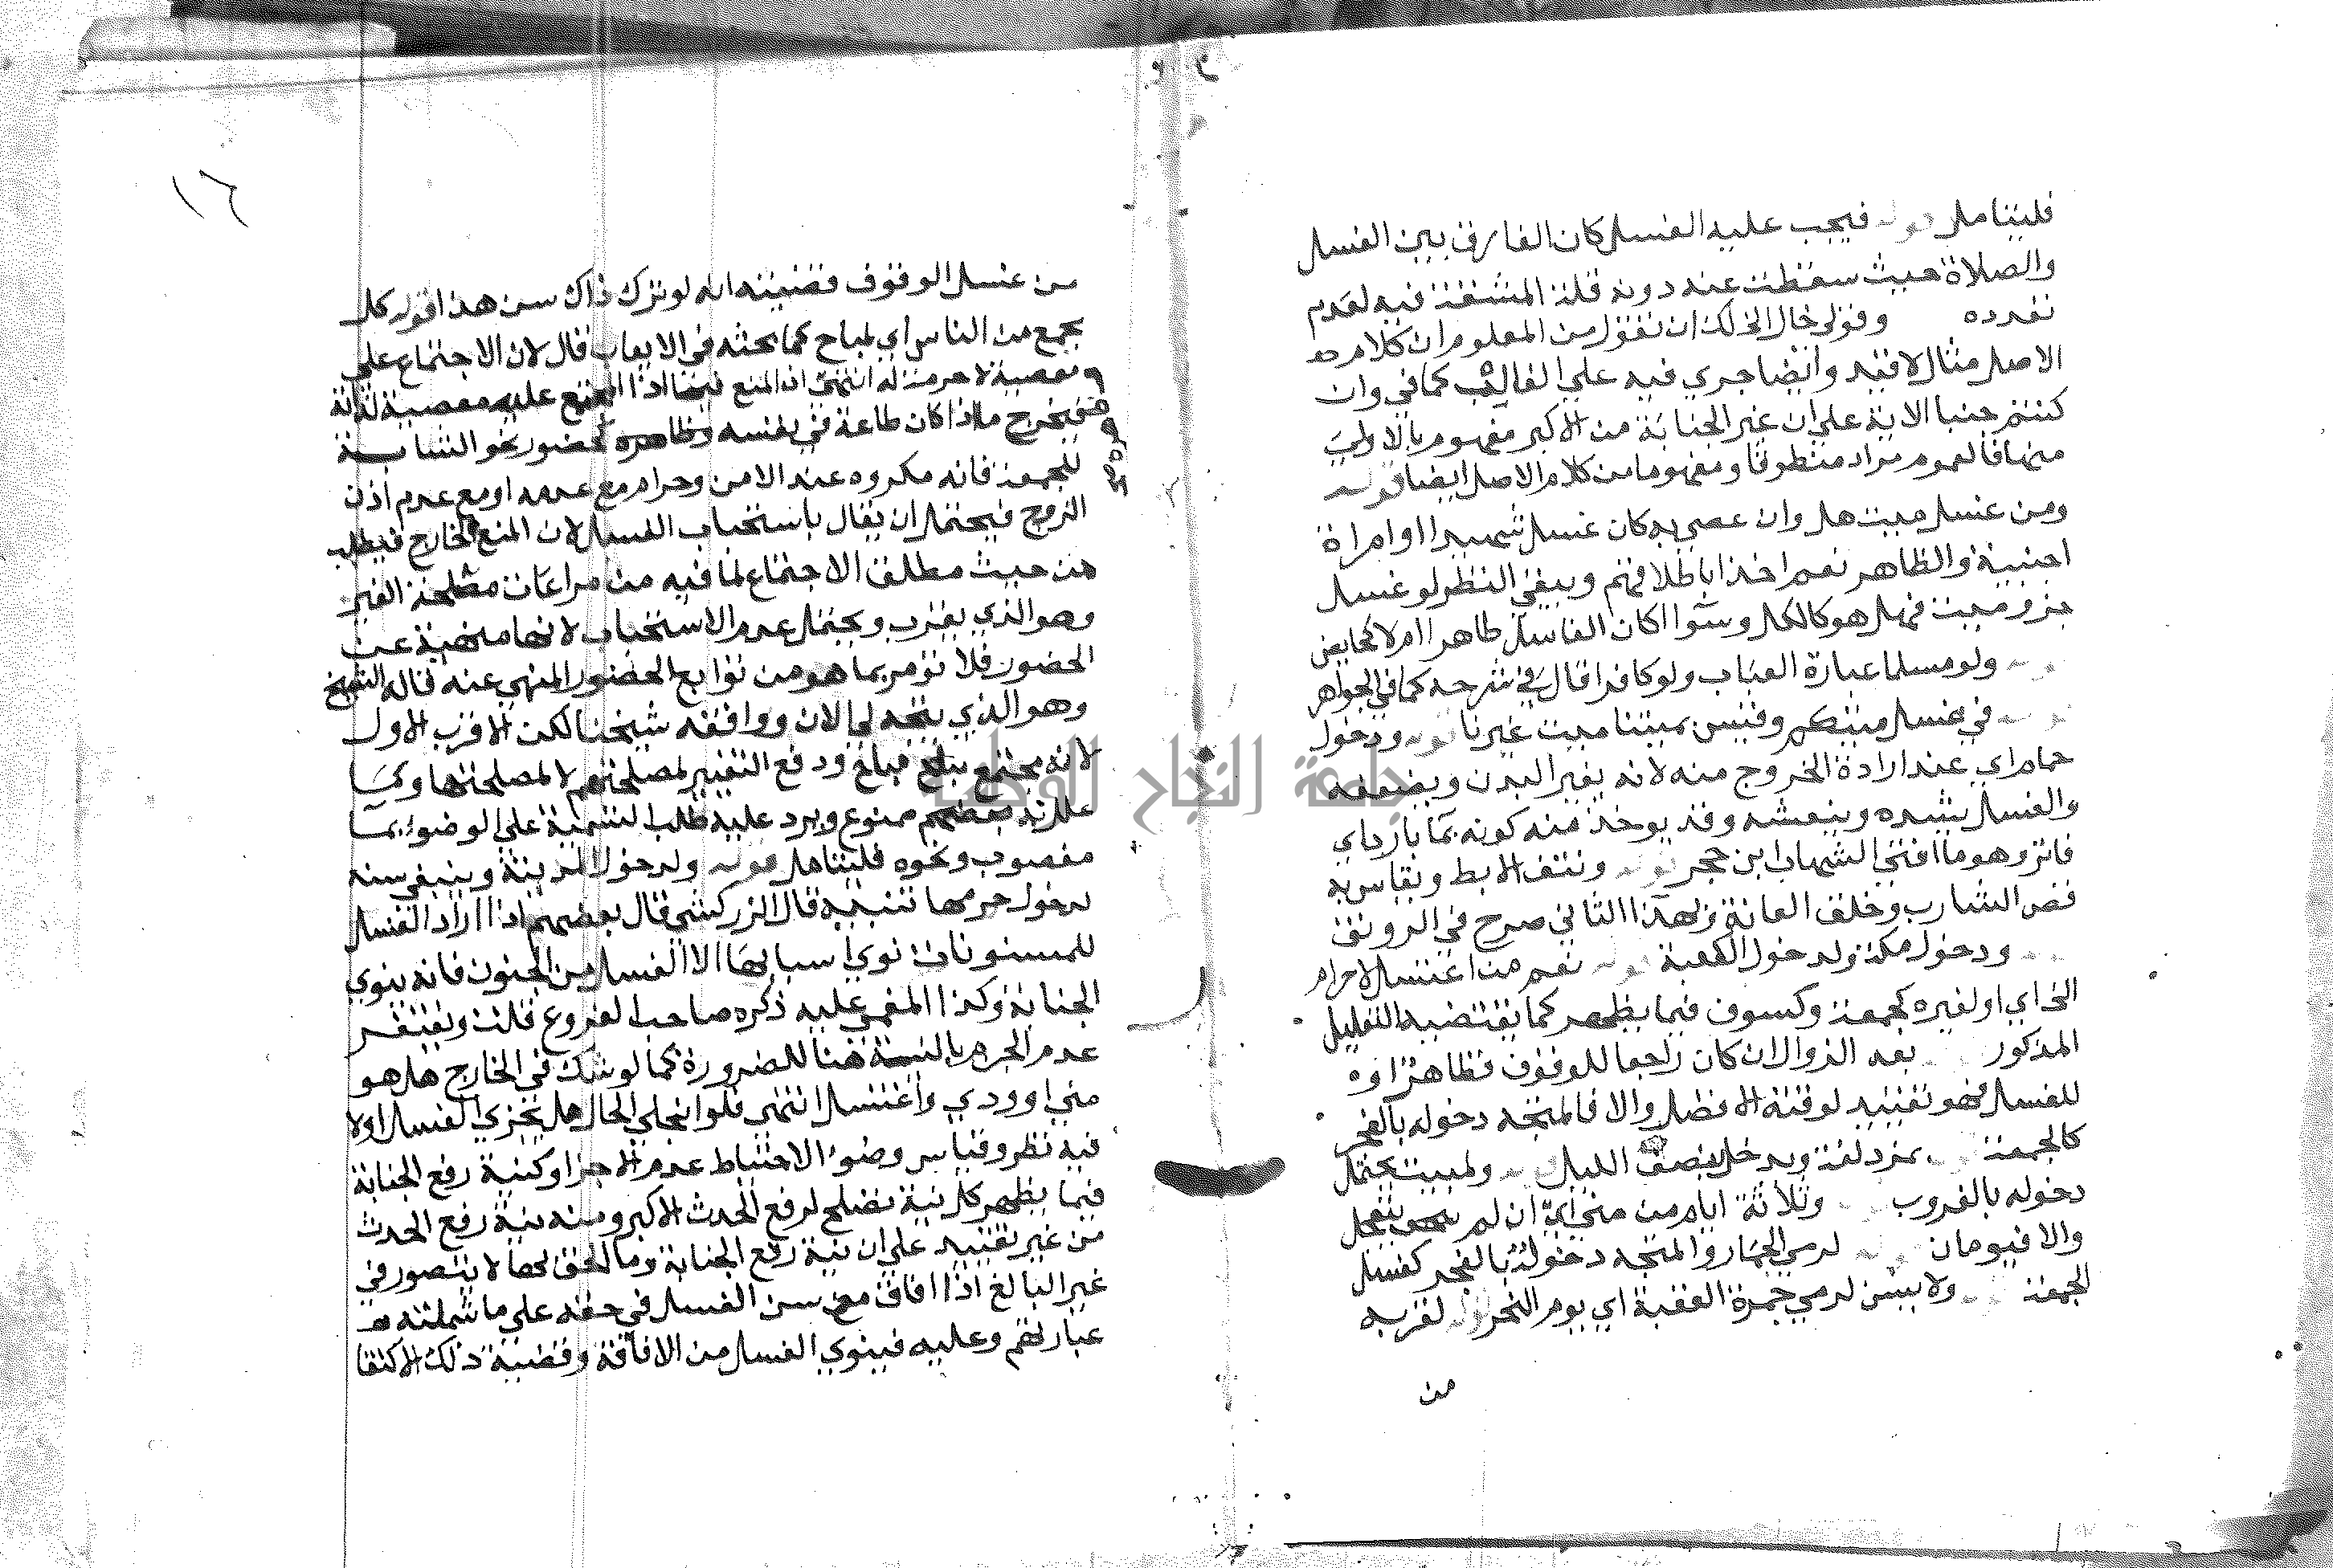 فليتامل قوله فيجب عليه الغسل كان الفارق بين الغسل
والصلاة حيث سقطت عنه دونه قلة المشقة فيه لعدم
تعدده وقولي خال الخ لك ان تقول من المعلوم ان كلامه
الاصل مثال لا قيد وايضا جري فيه علي الغالب كما في وان
كنتم جنبا الاية علي ان غير الجنابة من الاكبر مفهوم بالاولي
منها فالعموم مراد منطوقا ومفهوما من كلام الاصل ايضا قوله
ومن غسل ميت هل وان عصي به كان غسل شهيدا او امراة
اجنبية والظاهر نعم اخذا باطلاقهم وبقي النظر لو غسل
جزو ميت فهل هو كالكل وسوا اكان الغاسل طاهرا ام لا كحايض
قوله ولو مسلما عبارة العباب ولو كافرا قال في شرحه كما في الجواهر
قوله في غسل ميتكم وقيس بميتنا ميت غيرنا قوله ودخول
حمام اي عند ارادة الخروج منه لانه يغير البدن ويضعفه
والغسل يشده وينعشه وقد يوخذ منه كونه بما بارد اي
فاتر وهو ما افتي الشهاب ابن حجر قوله ونتف الابط ويقاس به
قص الشارب وحلق العانة وبهذا الثاني صرح في الرونق
قوله ودخول مكة ولدخول الكعبة قوله نعم من اغتسل لاحرام
الخ اي او لغيره كجمعة وكسوف فيما يظهر كما يقتضيه التعليل
المذكور بعد الزوال ان كان راجعا للوقوف فظاهر او
للغسل فهو تقييد لوقته الافضل والا فالمتجه دخوله بالفجر
كالجمعة بمزدلفة ويدخل بنصف الليل قوله ولمبيت يحتمل
دخوله بالغروب وثلاثة ايام من مني اي ان لم يتعجل
والا فيومان قوله لرمي الجمار والمتجه دخوله بالفجر كغسل
الجمعة ولا يسن لرمي جمرة العقبة اي يوم النحر قوله لقربه
من
١٦
من غسل الوقوف قضيته انه لو ترك ذاك سن هذا قوله كل
مجمع من الناس اي لمباح كما بحثه في الايعاب قال لان الاجتماع علي
معصية لا حرمة له انتهي المنع فيما اذا عليه معصية لذاته
فيخرج ما اذا كان طاعة في نفسه كحضور نحو الشابة
للجمعة فانه مكروه عند الامن وحرام مع عدمه او مع عدم اذن
الزوج فيحتمل ان يقال باستحباب الغسل لان المنع لخارج فيطلب
من حيث مطلق الاجتماع لما فيه من مراعات مصلحة الغير
وهو الذي يقرب ويحتمل عدم الاستحباب لانها منهية عن
الحضور فلا تومر بما هو من توابع الحضور المنهي عنه قاله الشيخ
وهو الذي يتجه لي الان ووافقه شيخنا لكن الاقرب الاول
لانه مجتمع ودفع التغيير لمصلحتهم لا لمصلحتها وكما
علل به بعضهم ممنوع ويرد عليه طلب التسمية علي الوضوء بما
مغصوب ونحوه فليتامل قوله ولدخول المدينة وينبغي سنه
لدخول حرمها تنبيه قال الزركشي قال بعضهم اذا اراد الغسل
للمسنونات نوي اسبابها الا الغسل من الجنون فانه ينوي
الجنابة وكذا المغمي عليه ذكره صاحب الفروع قلت ويغتفر
عدم الجزم بالنية هنا للضرورة كما لو شك في الخارج هل هو
مني او ودي واغتسل انتهي فلو انجلي الحال هل يجزي الغسل اولا
فيه نظر وقياس وضوء الاحتياط عدم الاجزا وكنية رفع الجنابة
فيما يظهر كل نية تصلح لرفع الحدث الاكبر ومنه نية رفع الحدث
من غير تقييد علي ان نية رفع الجنابة وما الحق بها لا يتصور في
غير البالغ اذا افاق مع سن الغسل في حقه علي ما شملته
عبارتهم وعليه فينوي الغسل من الافاقة وقضية ذلك الاكتفا
جامعة النجاح الوطنية